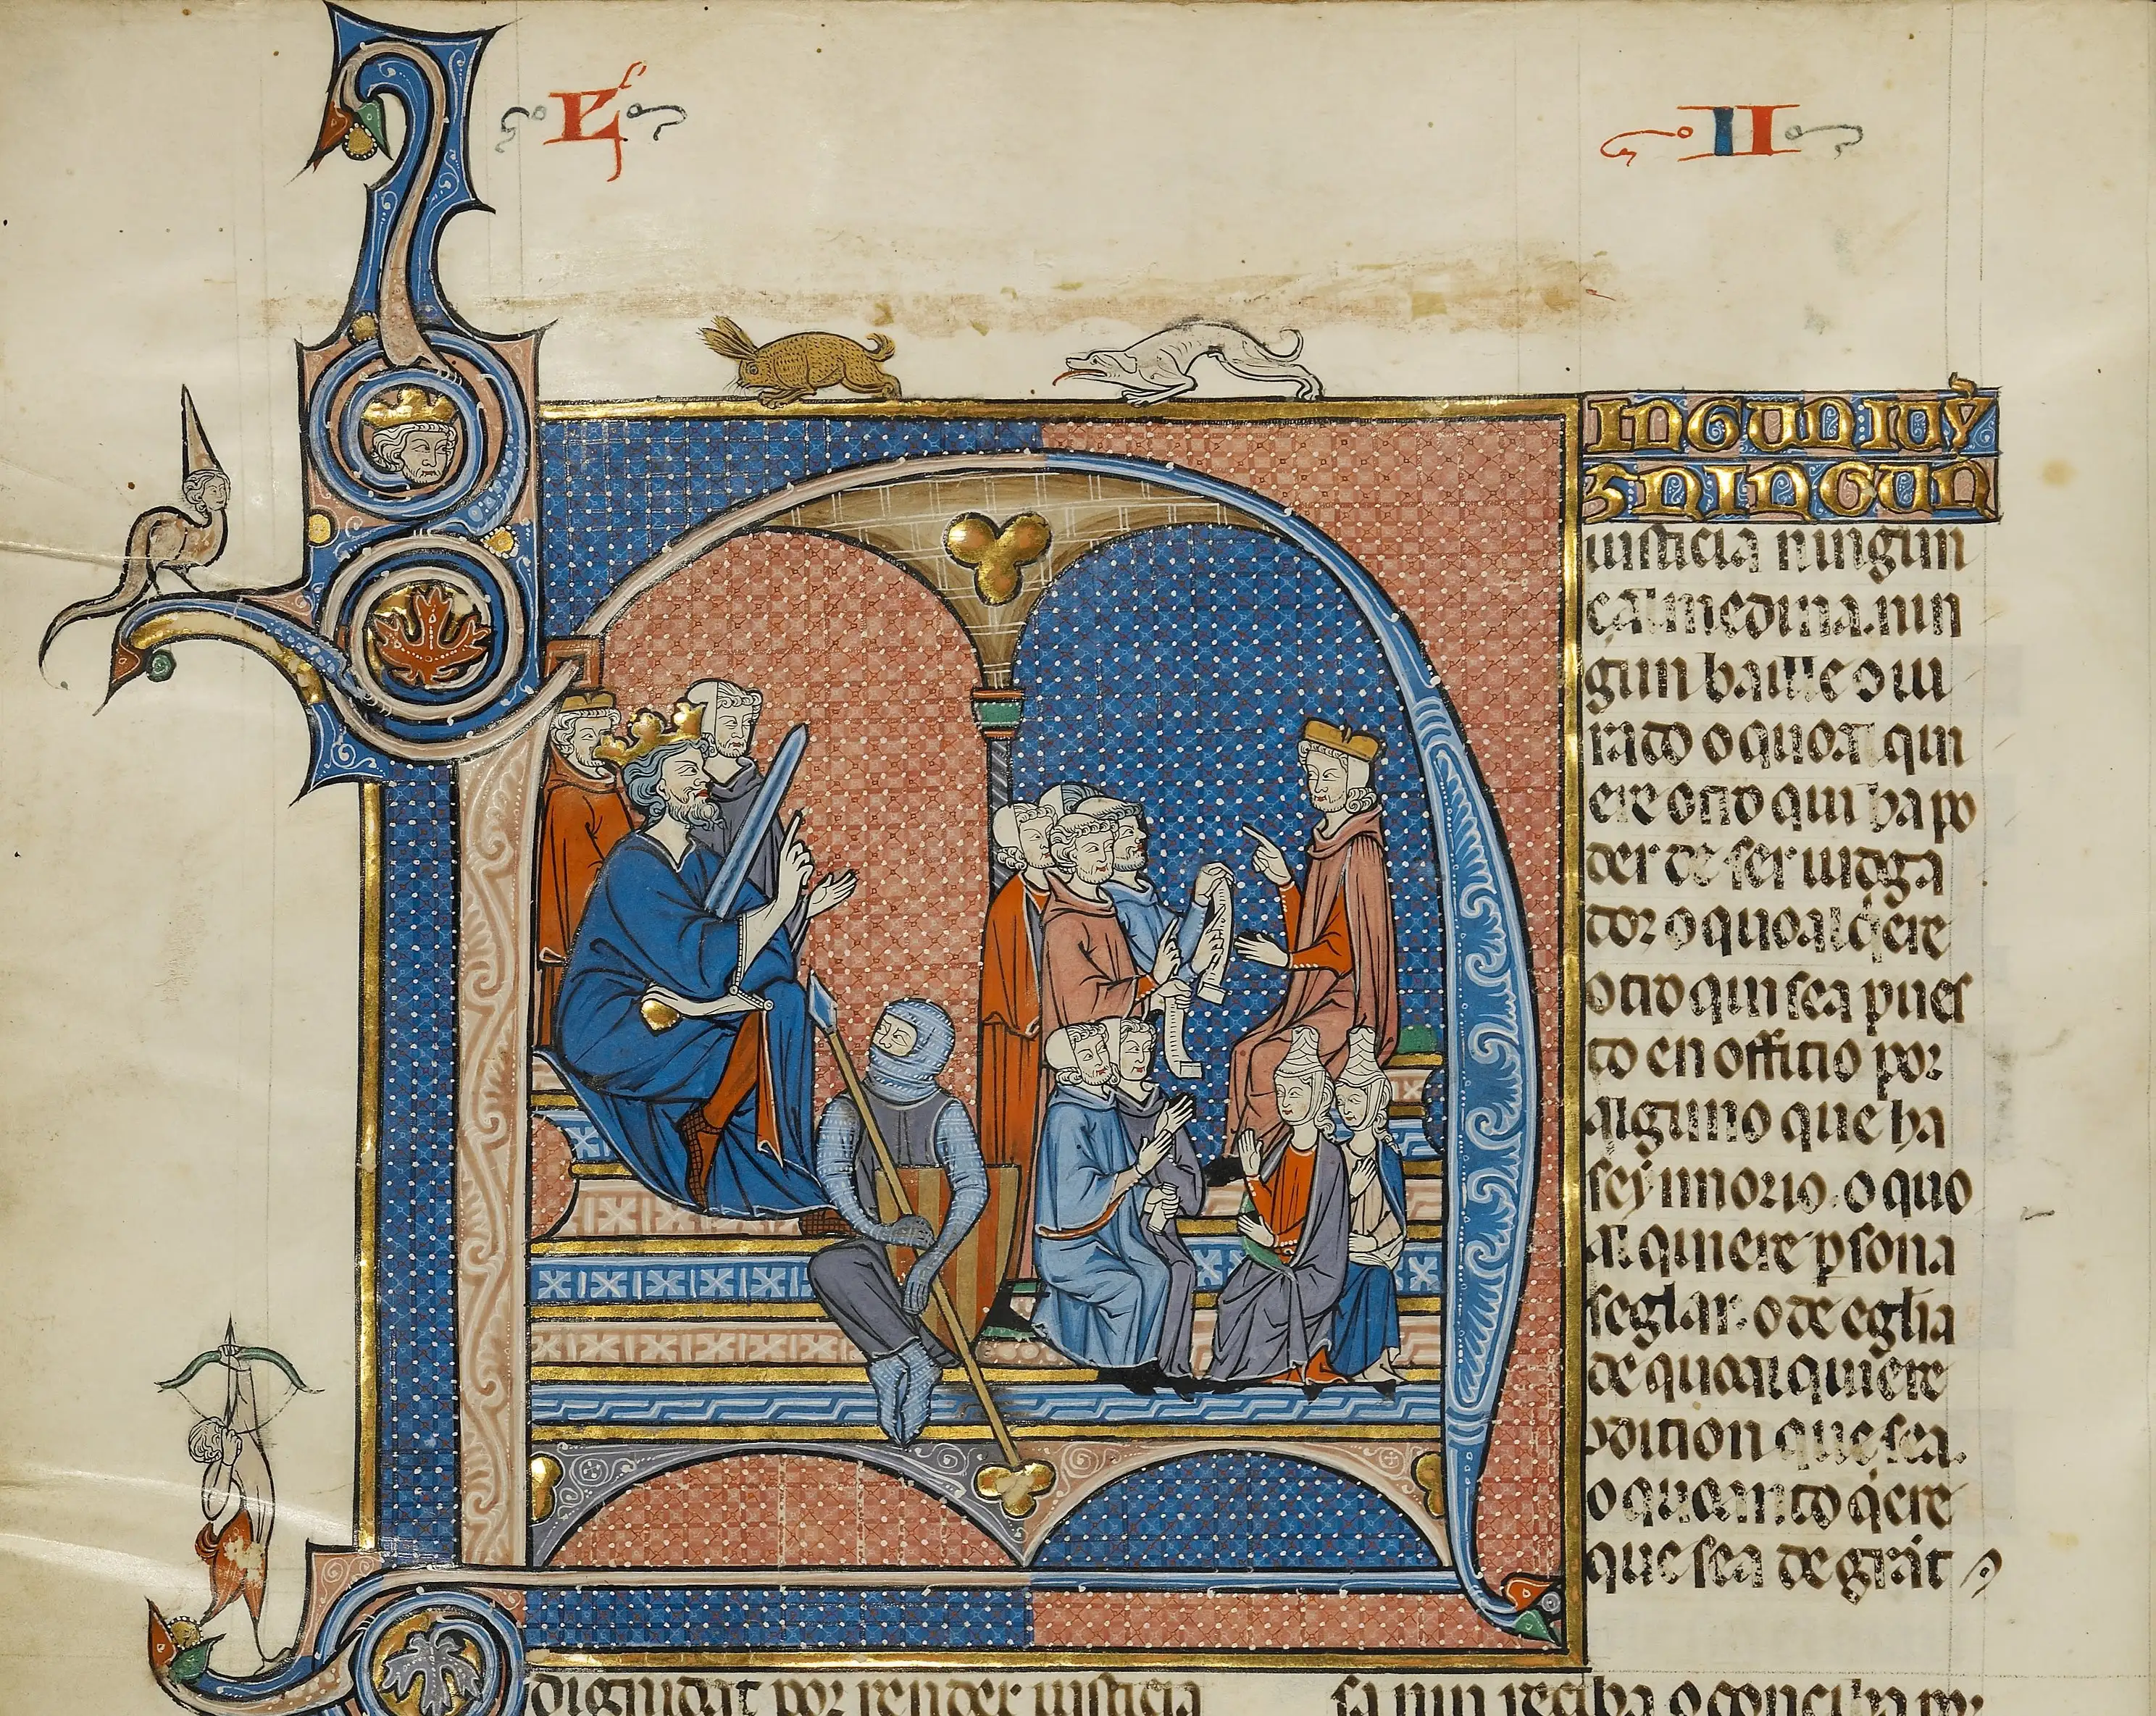 L II
INGUN IUY
Z NINGUN
iusticia ningun
çaualmedina. nin
gun bayle o iu
rado o qual qui
ere otro qui ha po
der de ser iudga
dor o qual q̇ere
otro qui sea pues
to en offitio por
alguno que ha
seynnorio. o quo
al quiere ꝑsona
seglar. o de eglia
de qual quiere
ↄdition que sea.
o quanto q̇ere
que sea de grãt
dignidat por render iusticia
sa nin reciba o